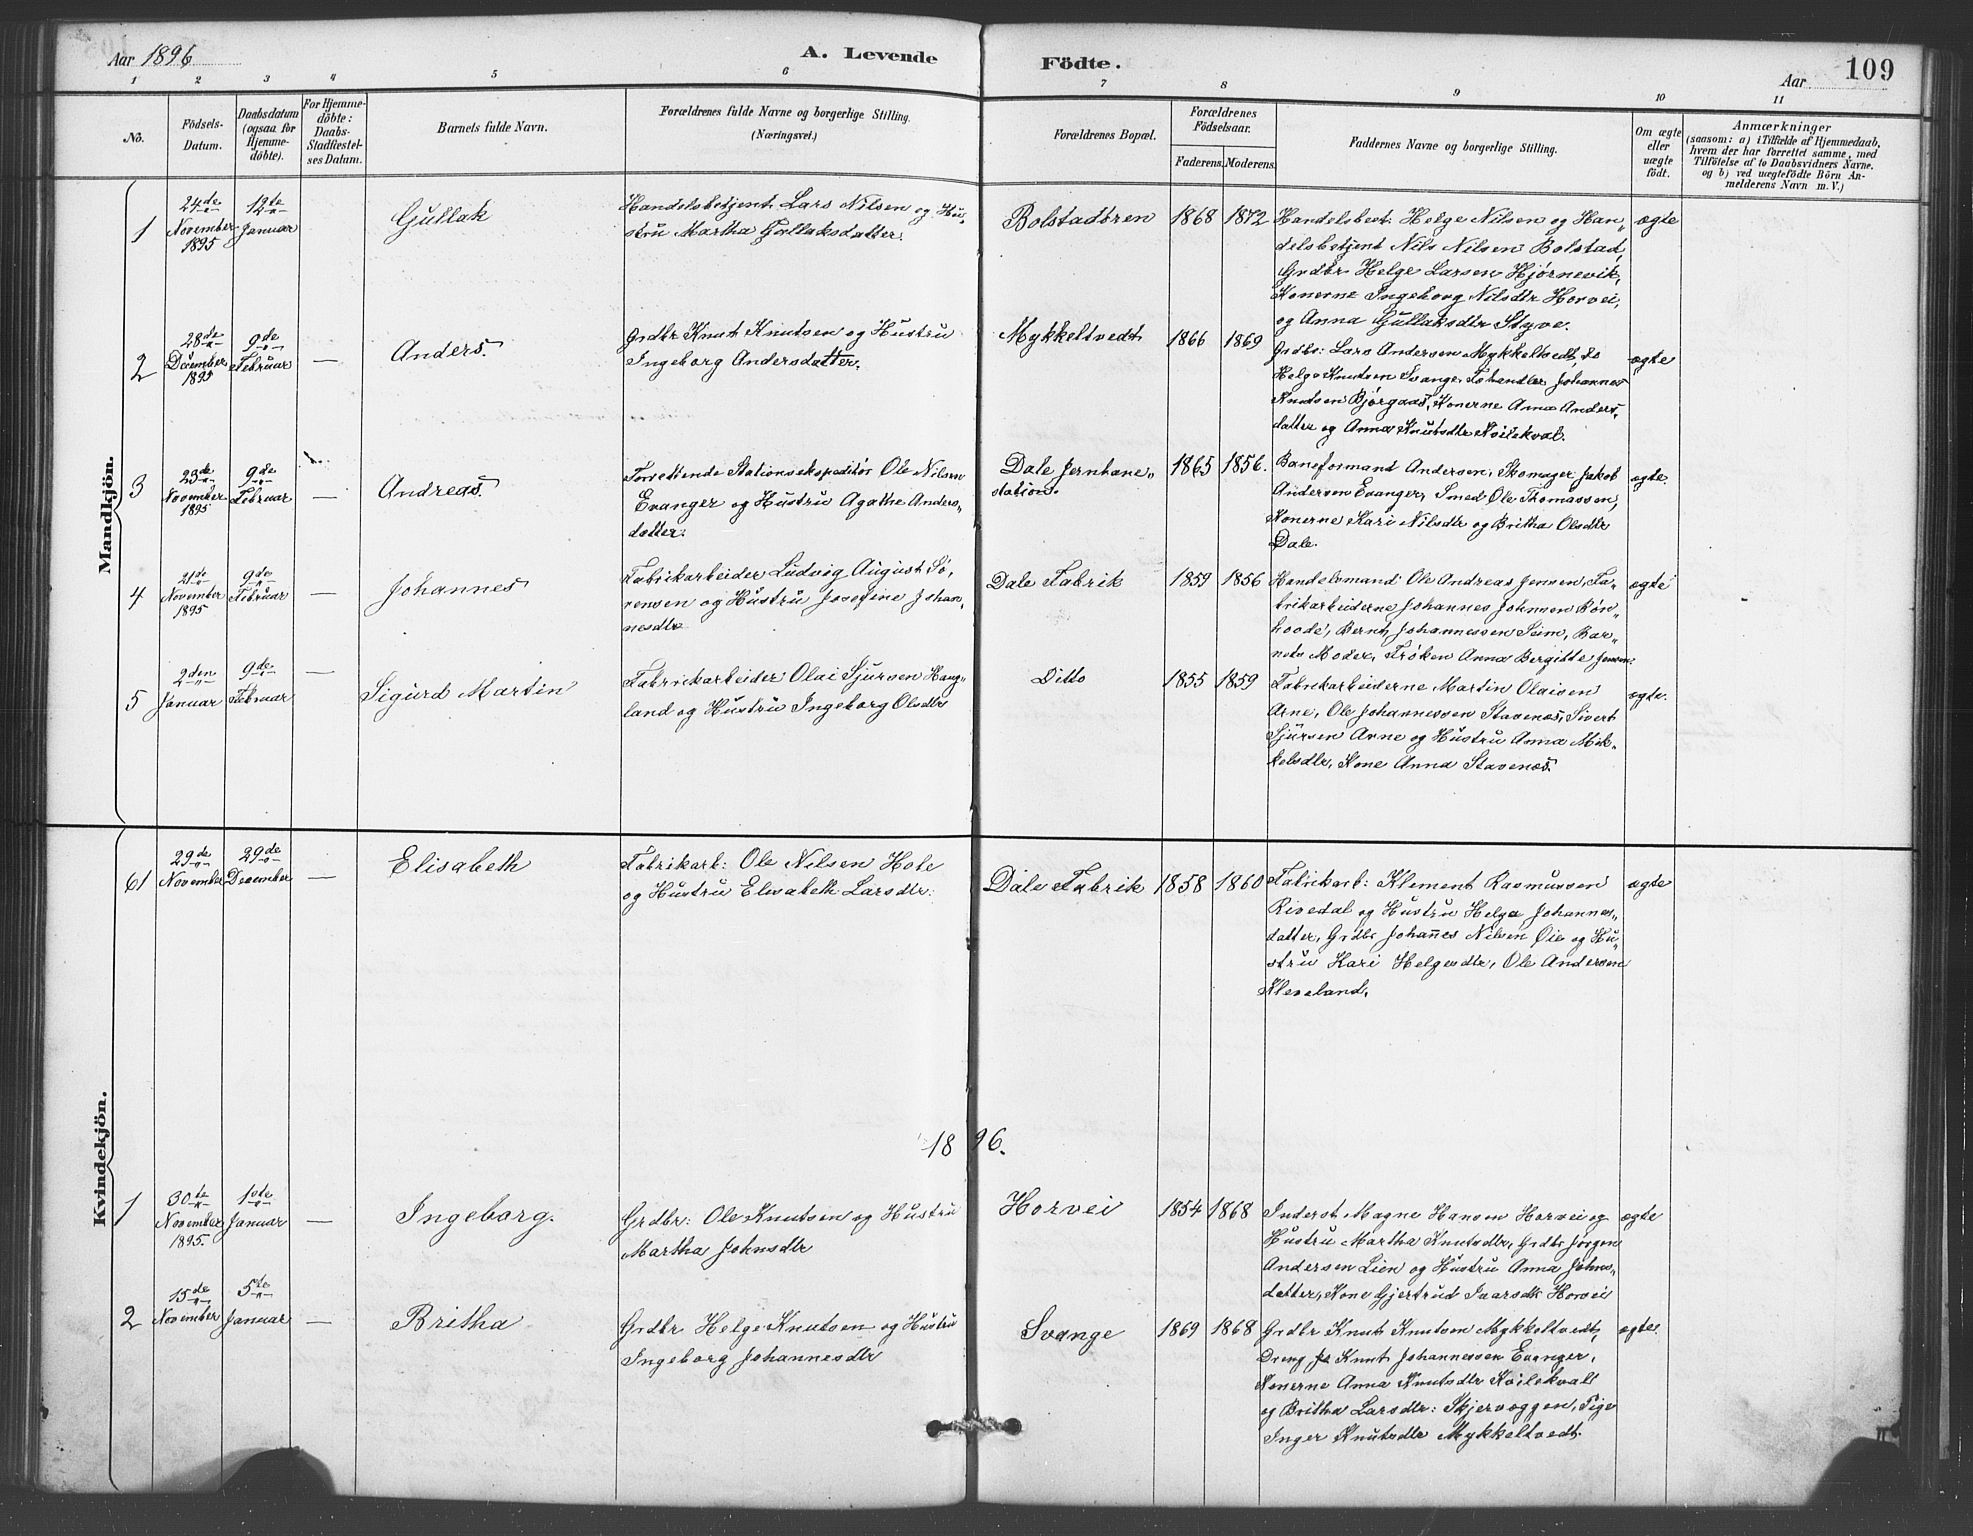 Aar 1896
A. Levende
Födte.
Aar
109
1 2 3 4 5 6 7 8 9 10 11
No.
Födsels-
Datum.
Daabsdatum
(ogsaa for
Hjemme-
döbte).
For Hjemme-
döbte:
Daabs-
Stadfæstel-
ses Datum.
Barnets fulde Navn.
Forældrenes fulde Navne og borgerlige Stilling.
(Næringsvei.)
Forældrenes Bopæl.
Forældrenes
Födselsaar.
Faderens. Moderens.
Faddernes Navne og borgerlige Stilling.
Om ægte
eller
uægte
födt.
Anmærkninger
(saasom: a) i Tilfælde af Hjemmedaab,
hvem der har forrettet samme, med
Tilföielse af to Daabsvidners Navne.
og b) ved uægtefödte Börn An-
melderens Navn m. V.)
Mandkjön.
1
24de
November
1895
12te
Januar
Gullak
Handelsbetjent Lars Nilsen og Hu-
stru Martha Gullaksdatter.
Bolstadören
1868
1872
Handelsbest. Helge Nilsen og Han-
delsbetjent Nils Nilsen Bolstad,
Grdbr Helge Larsen Hjørnevik,
Konerne Ingeborg Nilsdtr Horvei,
og Anna Gullaksdtr Styve.
ægte
2
28de
December
1895
9de
Februar
—
Anders.
Grdbr Knut Knutsen og Hustru
Ingeborg Andersdatter.
Mykkeltvedt
1866
1869
Grdbr: Lars Andersen Mykkeltvedt, do
Helge Knutsen Svange, Johannes
Knutsen Bjørgaas, Konerne Anna Anders-
datter og Anna Knutsdtr Kvilekval.
ægte
3
23de
November
1895
9de
Februar
—
Andreas.
Stationsekspeditör Ole Nilsen
Evanger og Hustru Agathe Anders-
datter.
Dale Jernbane-
station.
1865
1856.
Baneformand Andersen, Skomager Jakob
Andersen Evanger, Smed Ole Thomassen,
Konerne Kari Nilsdtr og Britha Olsdtr
Dale.
ægte
4
21de
November
1895
9de
Februar
—
Johannes
Fabrikarbeider Ludvig August Sö-
rensen og Hustru Josefine Johan-
nesdtr
Dale Fabrik
1859
1856
Handelsmand Ole Andreas Jensen, Fa-
brikarbeiderne Johannes Johnsen
Bernt Johannessen Seim, Bar-
nets Moder, Frøken Anna Bergitte Jensen
ægte
5
2den
Januar
9de
Februar
—
Sigurd Martin
Fabrikarbeider Olai Sjursen Haug-
land og Hustru Ingeborg Olsdtr
Ditto
1855
1859
Fabrikarbeiderne Martin Olaisen
Arne, Ole Johannessen Stavenes, Sivert
Sjursen Arne og Hustru Anna Mik-
kelsdtr, Kone Anna Stavenes.
ægte.
Kvindekjön.
61
29de
November
29de
December
—
Elisabeth
Fabrikarb: Ole Nilsen Hole
og Hustru Elisabeth Larsdtr.
Dale Fabrik
1858
1860
Fabrikarb: Klement Rasmussen
Rivedal og Hustru Helga Johannes-
datter, Grdbr Johannes Nilsen Öie og Hu-
stru Kari Helgesdtr, Ole Andersen
Kleveland.
ægte
1896.
1
30te
November
1895.
1ste
Januar
—
Ingeborg.
Grdbr: Ole Knutsen og Hustru
Martha Johnsdtr
Horvei
1854
1868
Inderst Magne Hansen Horvei og
Hustru Martha Knutsdtr, Grdbr Jørgen
Andersen Lien og Hustru Anna Johns-
datter, Kone Gjertrud Ivarsdtr Horvei
ægte
2
15de
November
5te
Januar
—
Britha
Grdbr Helge Knutsen og Hustru
Ingeborg Johannesdtr
Svange
1869
1868
Grdbr Knut Knutsen Mykkeltvedt,
Dreng Knut Johannessen Evanger,
Konerne Anna Knutsdtr Kvilekval
og Britha Larsdtr: Skjerveggen, Pige
Inger Knutsdtr Mykkeltvedt.
ægte.